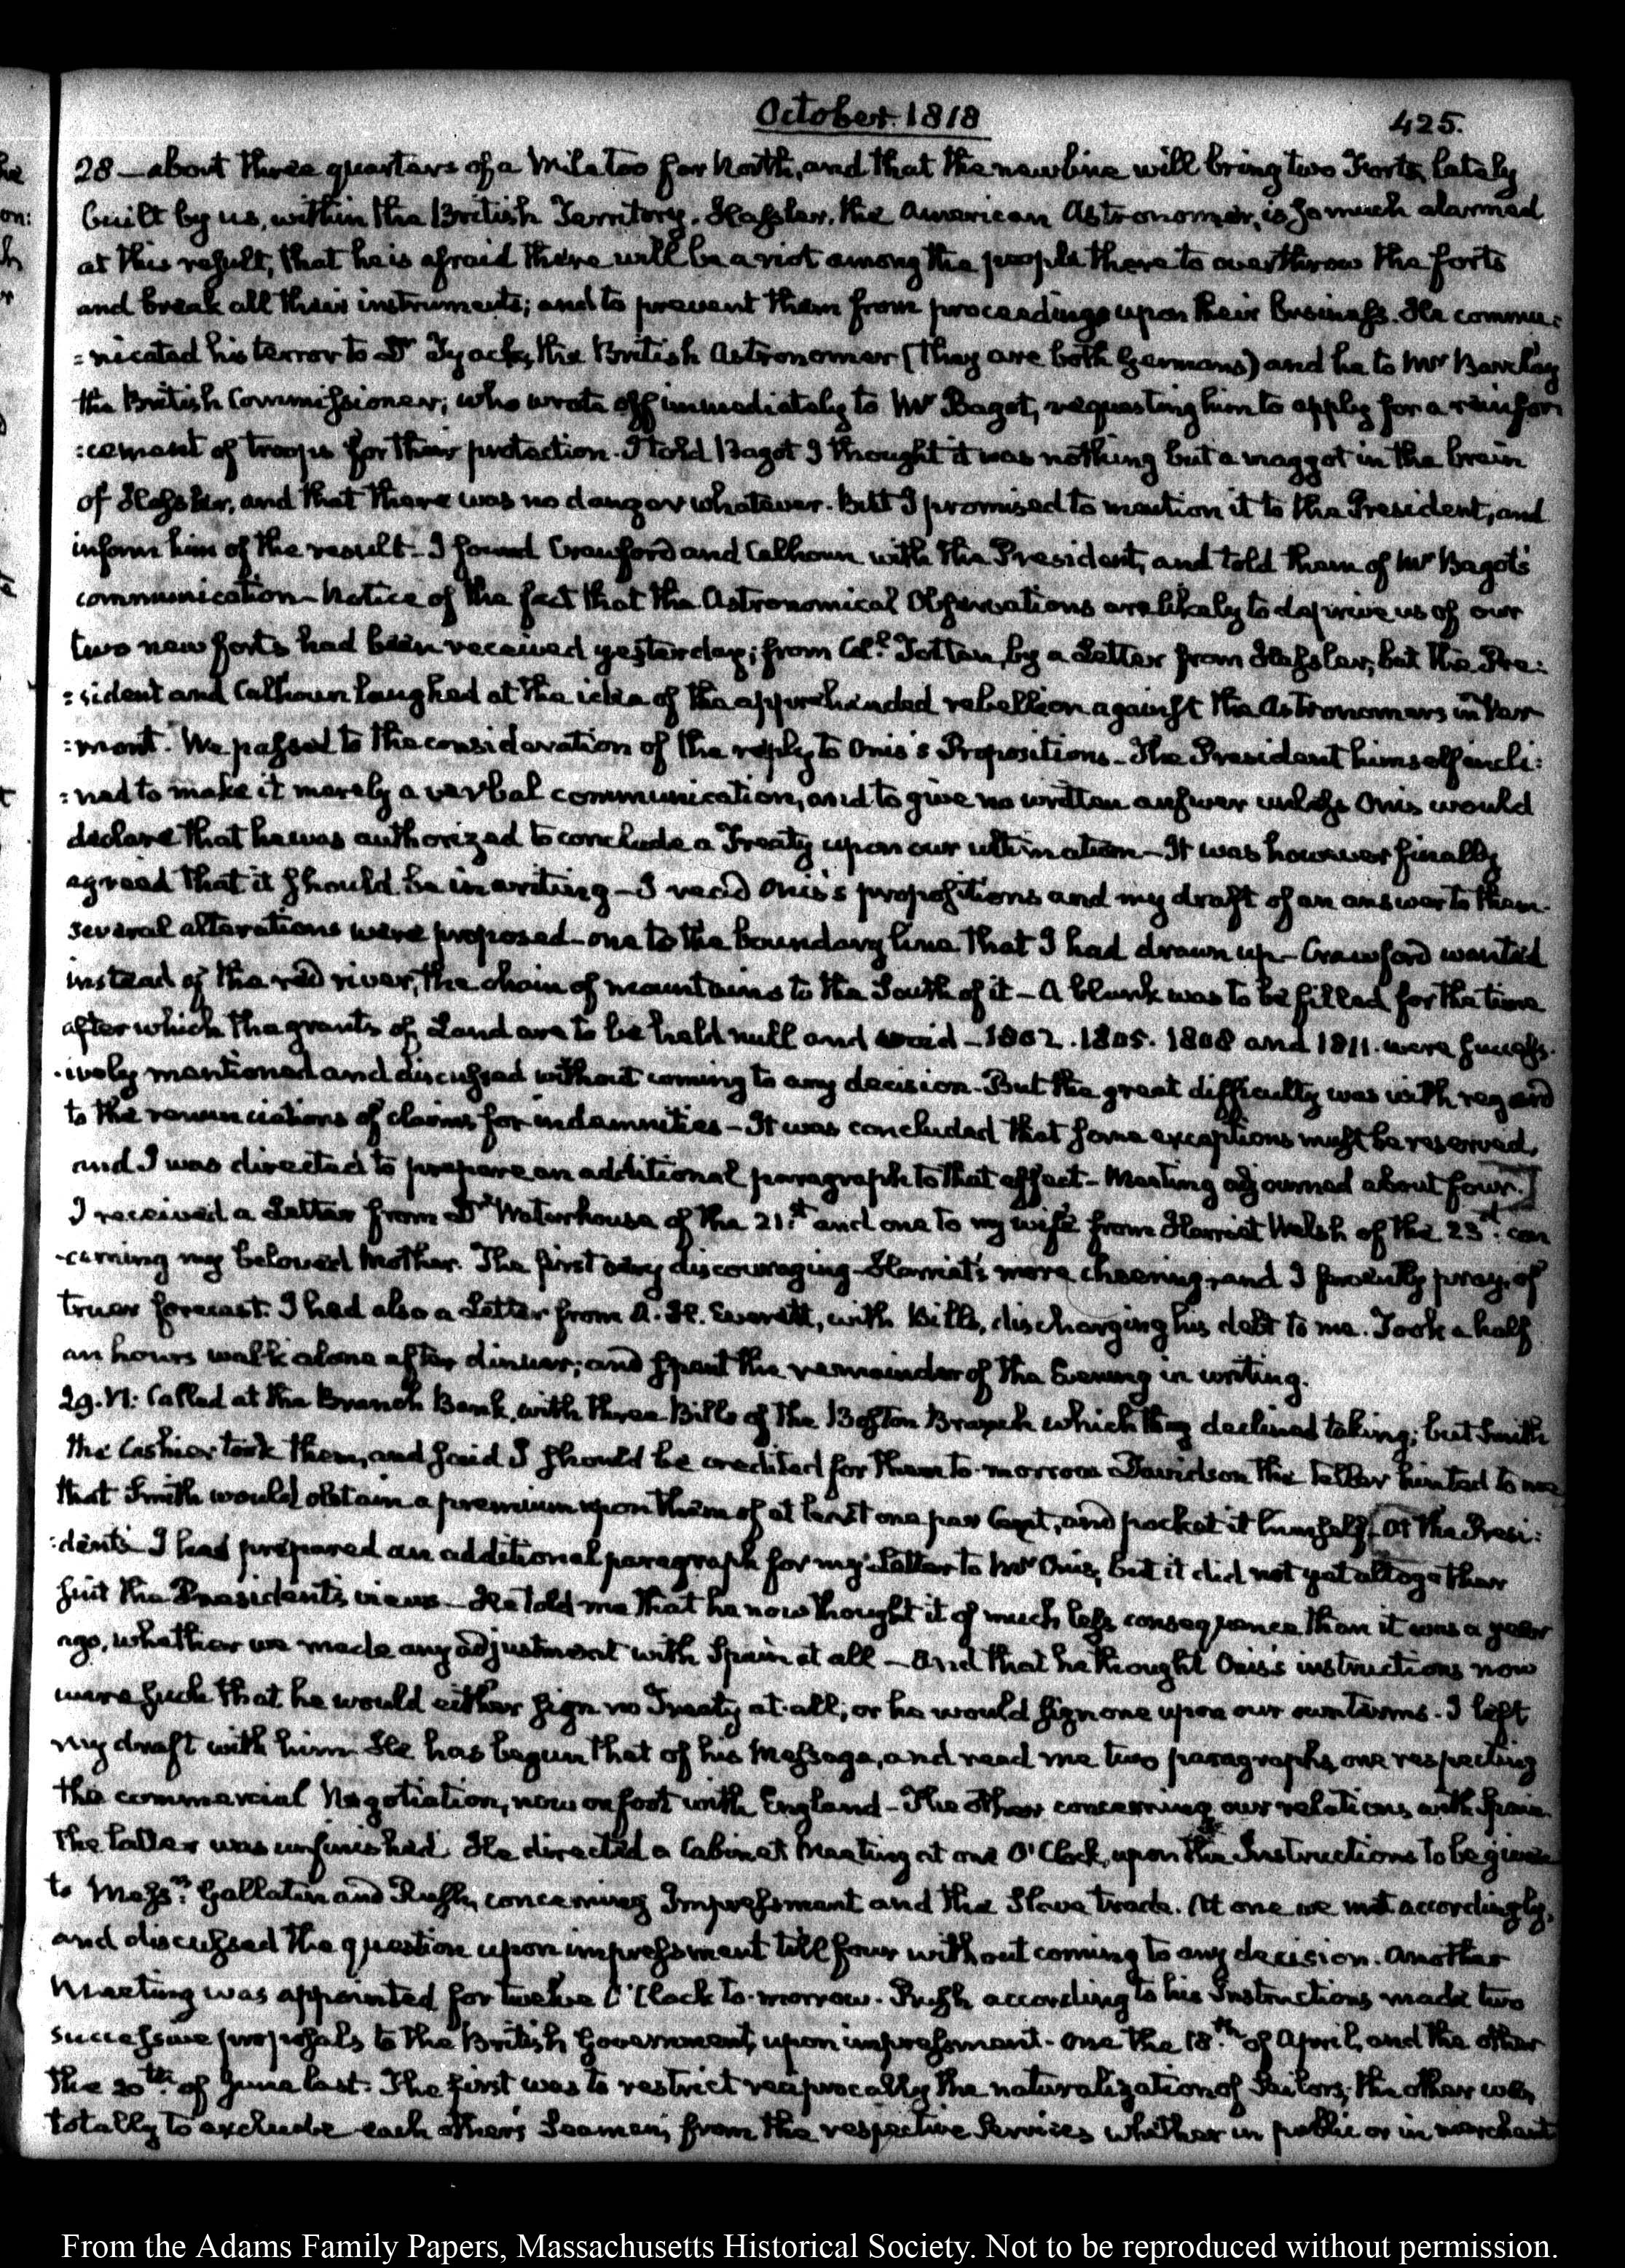 October. 1818
425.
28 — about three quarters of a Mile too far North, and that the new line will bring two Forts, lately
built by us, within the British Territory. Hassler, the American Astronomer, is so much alarmed
at this result, that he is afraid there will be a riot among the people there to overthrow the forts
and break all their instruments; and to prevent them from proceeding upon their business. He commu:
:nicated his terror to Dr Tyarks, the British Astronomer (they are both Germans) and he to Mr Barclay
the British Commissioner; who wrote off immediately to Mr Bagot, requesting him to apply for a reinfor
:cement of troops for their protection. I told Bagot I thought it was nothing but a maggot in the brain
of Hassler, and that there was no danger whatever. But I promised to mention it to the President, and
inform him of the result. I found Crawford and Calhoun with the President, and told them of Mr Bagot's
communication — Notice of the fact that the Astronomical Observations are likely to deprive us of our
two new forts had been received yesterday; from Coll. Totten, by a Letter from Hassler; but the Pre:
:sident and Calhoun laughed at the idea of the apprehended rebellion against the Astronomers in Ver
:mont. We passed to the consideration of the reply to Onis's Propositions — The President himself incli:
:ned to make it merely a verbal communication, and to give no written answer unless Onis would
declare that he was authorized to conclude a Treaty upon our ultimatum — It was however finally
agreed that it should be in writing — I read Onis's propositions and my draft of an answer to them.
several alterations were proposed — one to the boundary line that I had drawn up — Crawford wanted
instead of the red river, the chain of mountains to the South of it — A blank was to be filled for the time
after which the grants of Land are to be held null and void — 1802. 1805. 1808 and 1811. were success.
.ively mentioned and discussed without coming to any decision. But the great difficulty was with regard
to the renunciations of claims for indemnities — It was concluded that some exceptions must be reserved,
and I was directed to prepare an additional paragraph to that effect — Meeting adjourned about four.]
I received a Letter from Dr Waterhouse of the 21.st and one to my wife from Harriet Welsh of the 23.d con
-cerning my beloved Mother. The first very discouraging — Harriet's more cheering, and I fervently pray, of
truer forecast. I had also a Letter from A. H. Everett, with Bills, discharging his debt to me. Took a half
an hours walk alone after dinner; and spent the remainder of the Evening in writing.
29. VI: Called at the Branch Bank, with three Bills of the Boston Branch which they declined taking; but Smith
the Cashier took them, and said I should be credited for them to-morrow Davidson the teller hinted to me
that Smith would obtain a premium upon them of at least one per Cent, and pocket it himself. [At the Presi:
:dent's I had prepared an additional paragraph for my Letter to Mr Onis, but it did not yet altogether
suit the President's views — He told me that he now thought it of much less consequence than it was a year
ago, whether we made any adjustment with Spain at all — And that he thought Onis's instructions now
were such that he would either sign no Treaty at all; or he would sign one upon our own terms. I left
my draft with him. He has begun that of his Message, and read me two paragraphs, one respecting
the commercial Negotiation, now on foot with England — The other concerning our relations with Spain.
The latter was unfinished. He directed a Cabinet Meeting at one O'Clock, upon the Instructions to be given
to Messrs. Gallatin and Rush, concerning Impressment and the Slave trade. At one we met accordingly,
and discussed the question upon impressment till four without coming to any decision. Another
Meeting was appointed for twelve O'Clock to-morrow. Rush according to his Instructions made two
successive proposals to the British Government, upon impressment. one the 18.th of April, and the other
the 20th. of June last. The first was to restrict reciprocally the naturalization of Sailors; the other was,
totally to exclude each others Seamen, from the respective Services whether in public or in merchant
From the Adams Family Papers, Massachusetts Historical Society. Not to be reproduced without permission.